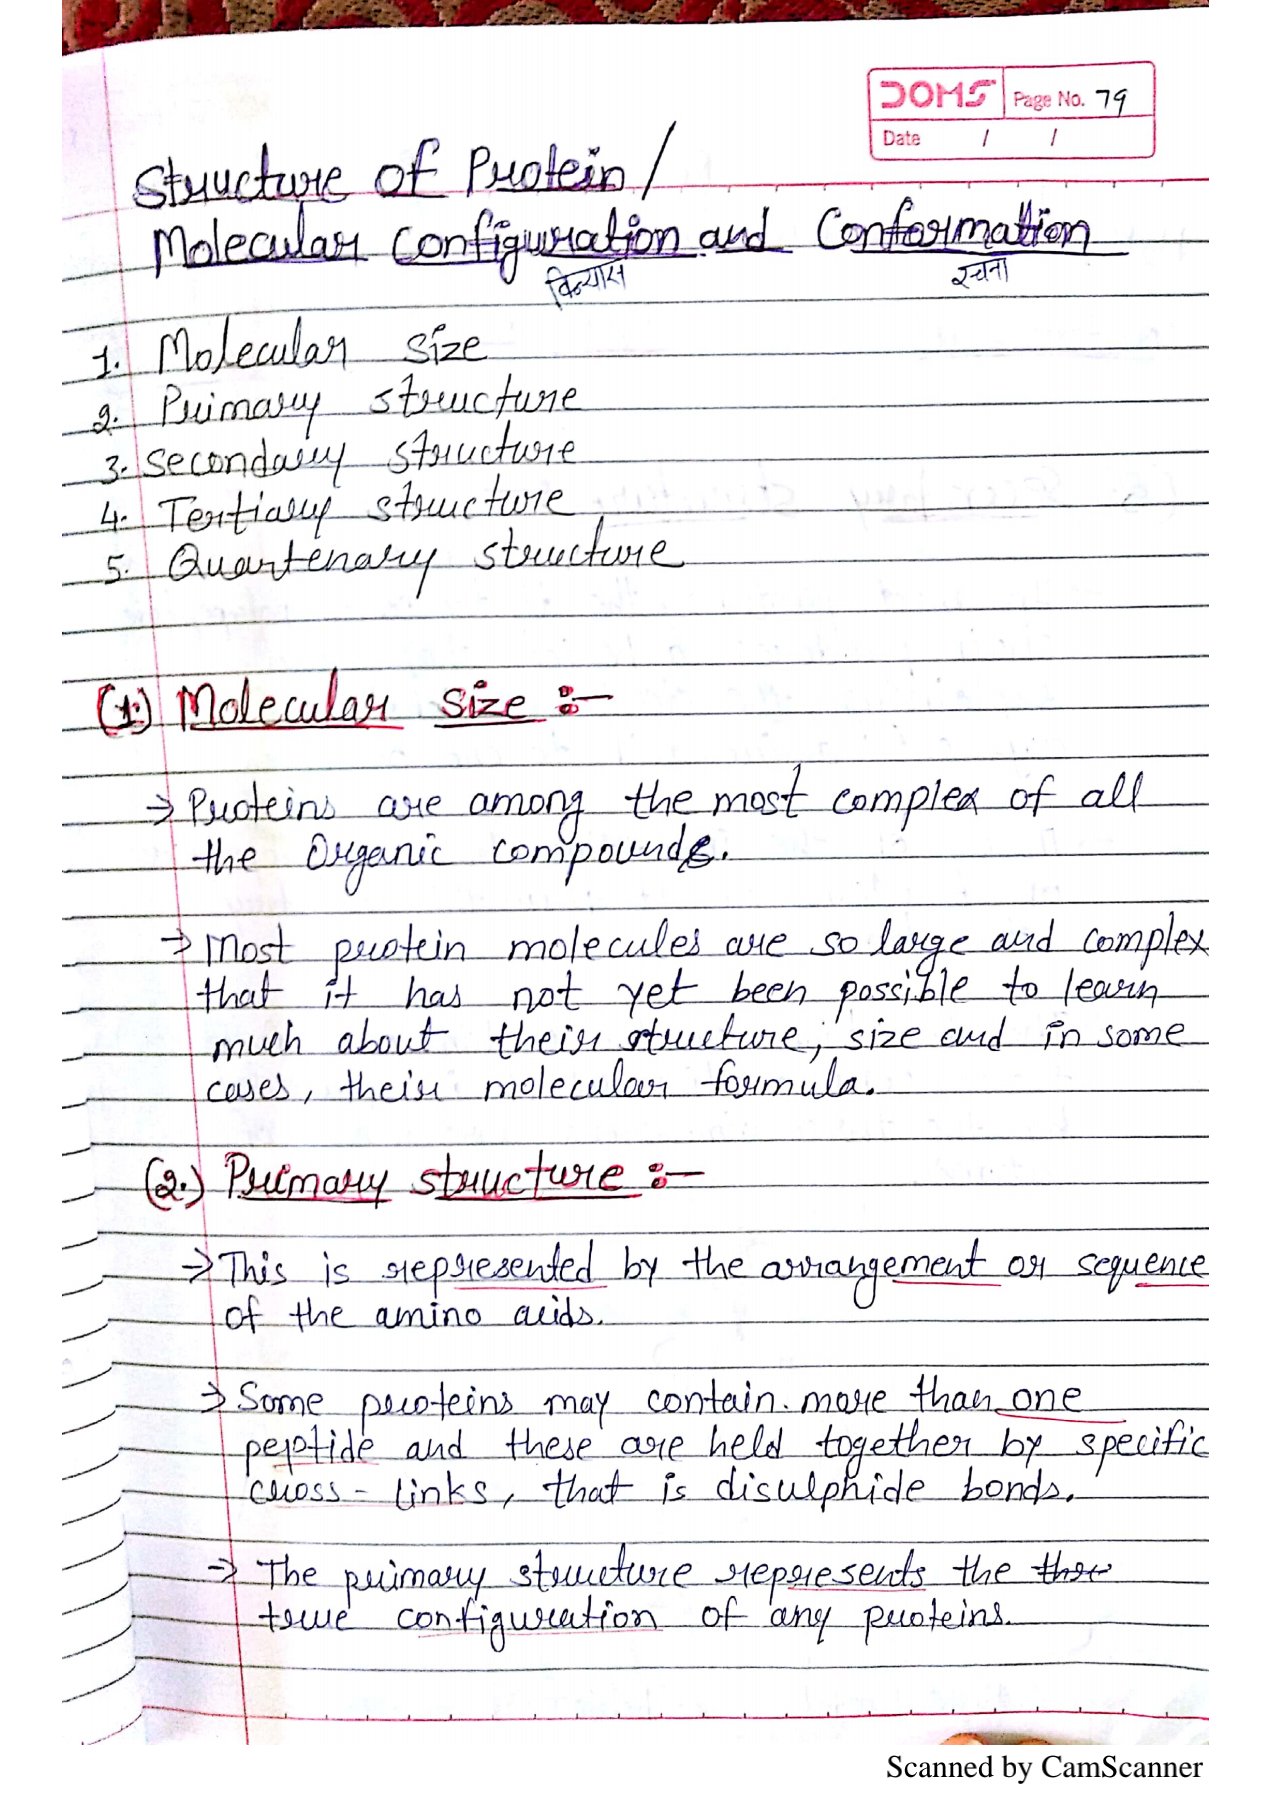 DOMS Page No. 79
Date / /
Structure of Protein/
Molecular Configuration and Conformation
विन्यास रचना
1. Molecular size
2. Primary structure
3. Secondary structure
4. Tertiary structure
5. Quartenary structure
(1.) Molecular size :-
→ Proteins are among the most complex of all
the Organic compounds.
→ Most protein molecules are so large and complex
that it has not yet been possible to learn
much about their structure, size and in some
cases, their molecular formula.
(2.) Primary structure :-
→ This is represented by the arrangement or sequence
of the amino acids.
→ Some proteins may contain more than one
peptide and these are held together by specific
cross-links, that is disulphide bonds.
→ The primary structure represents the
true configuration of any proteins.
Scanned by CamScanner